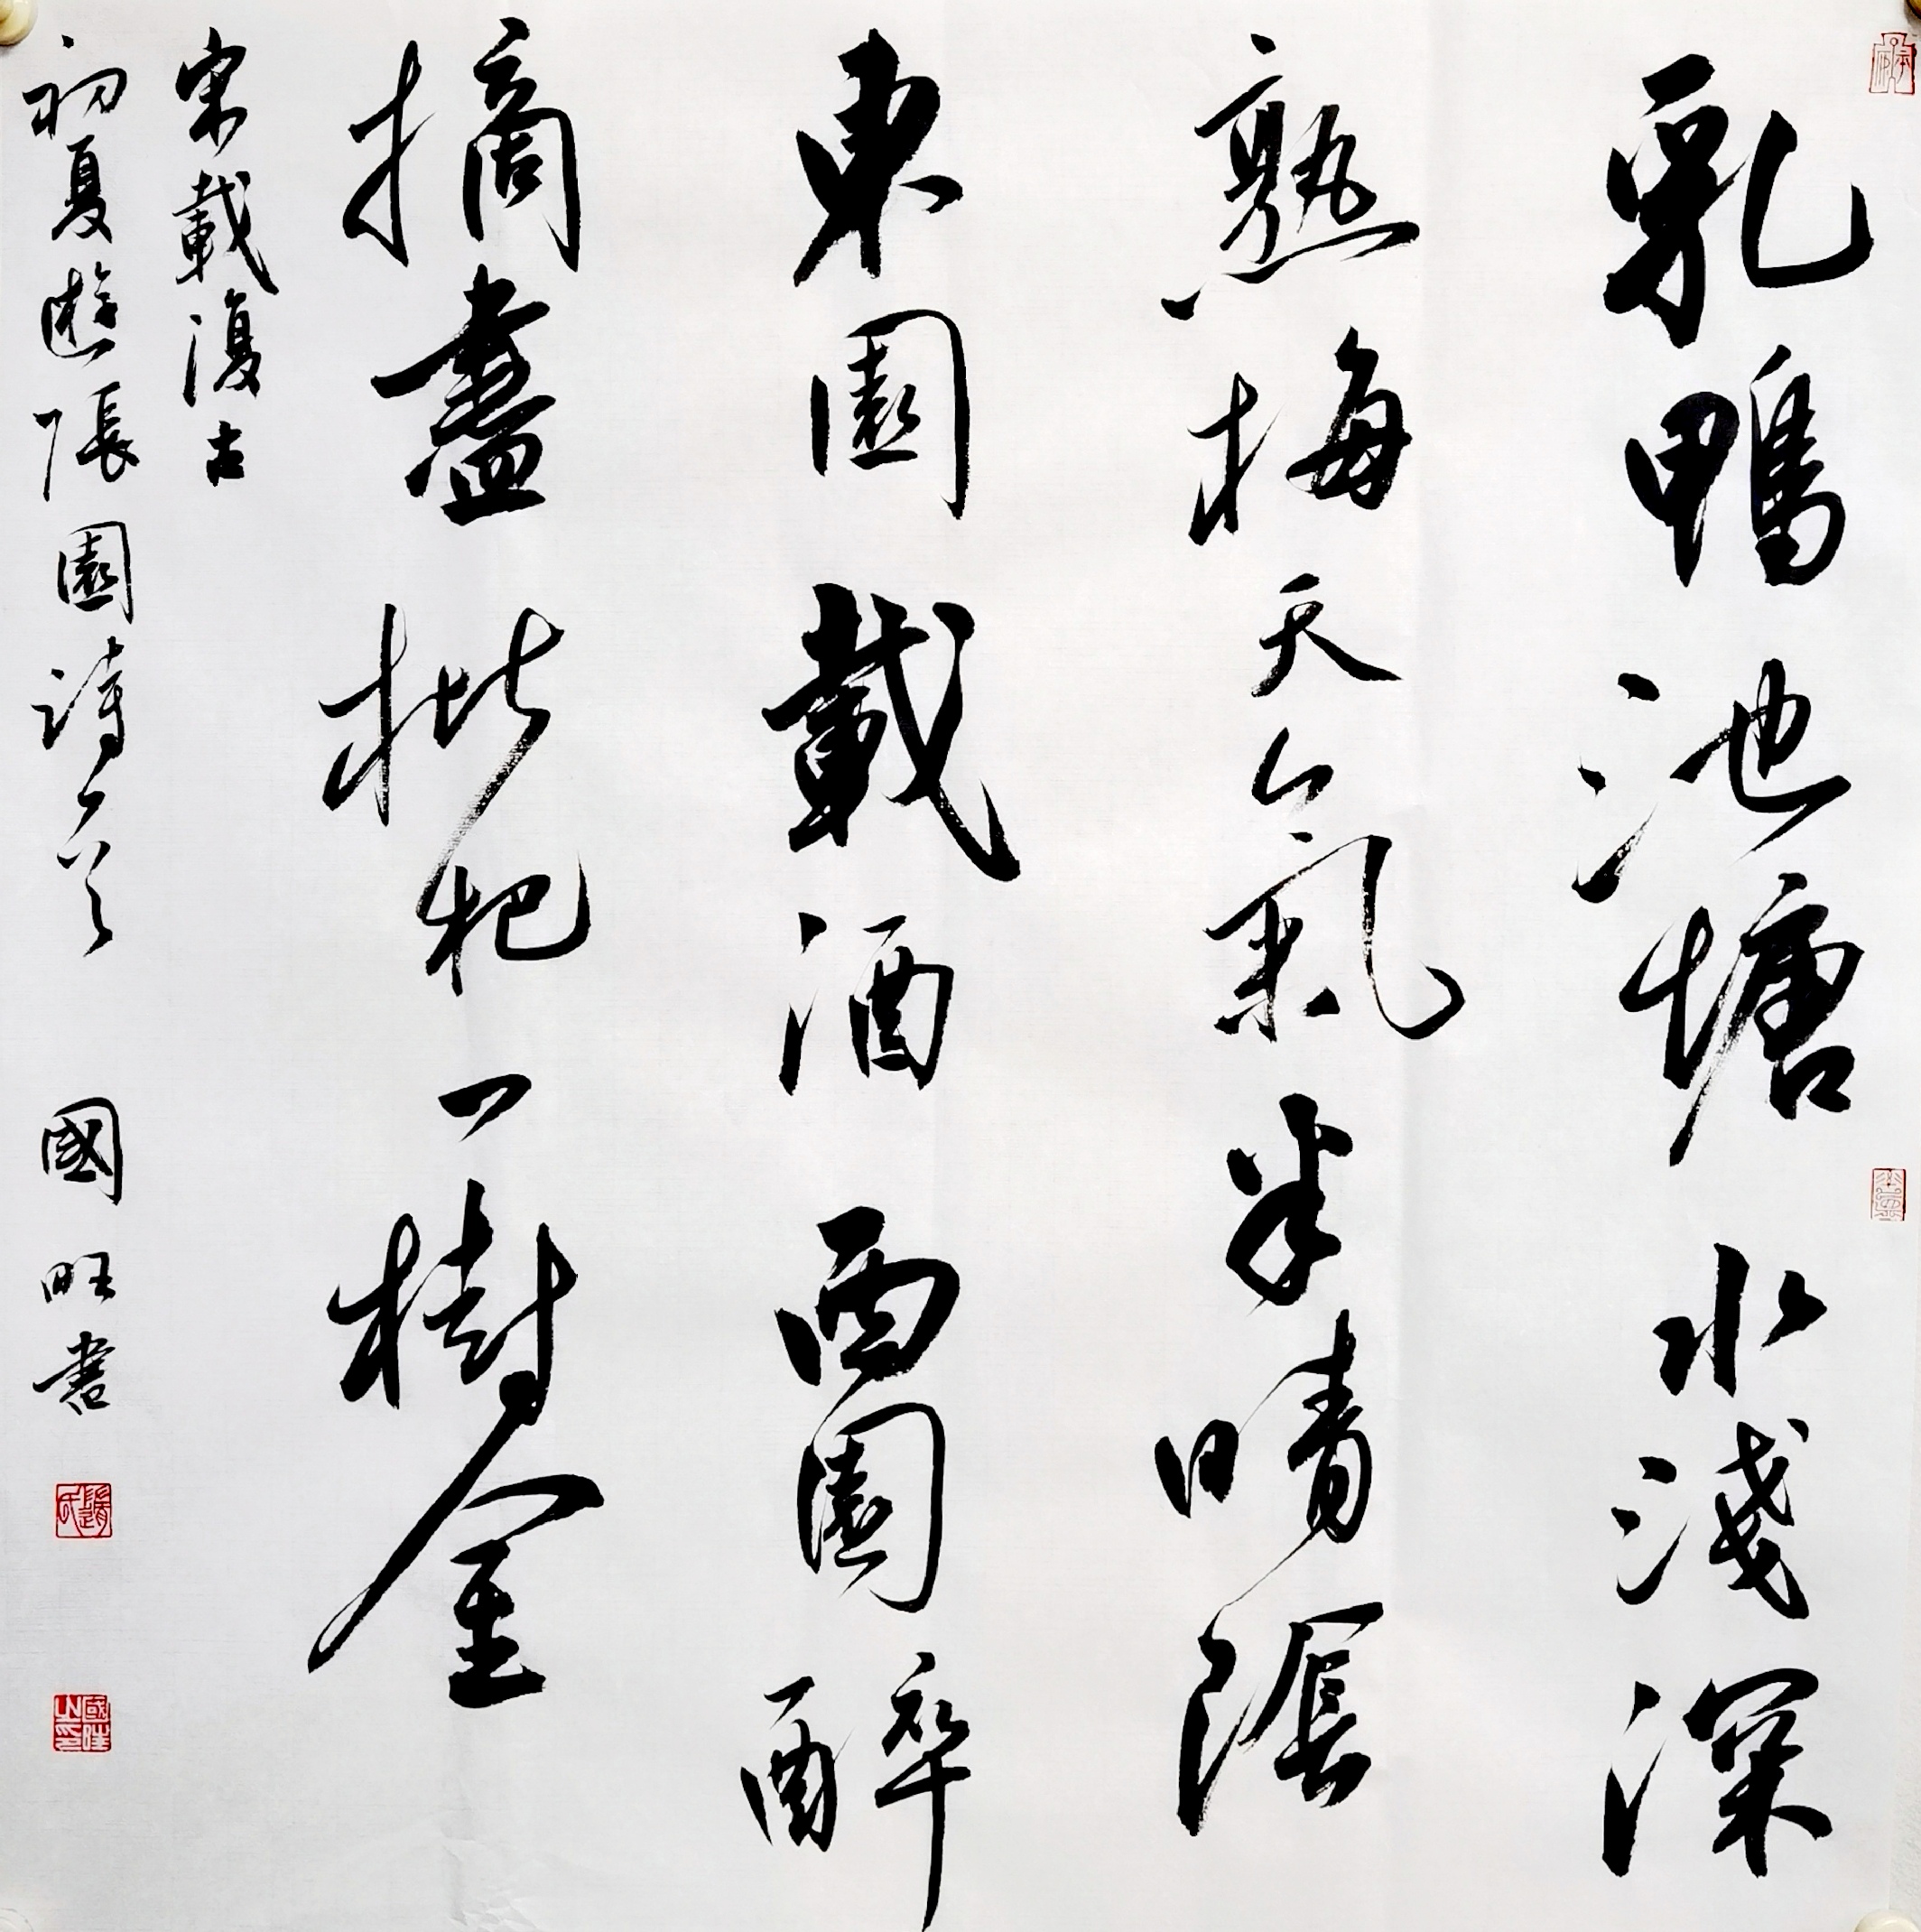 乳鴨池塘水淺深
熟梅天氣半晴陰
東園載酒西園醉
摘盡枇杷一樹金
宋載復古
初夏遊張園詩一首 國旺書
隨氏
國旺之印